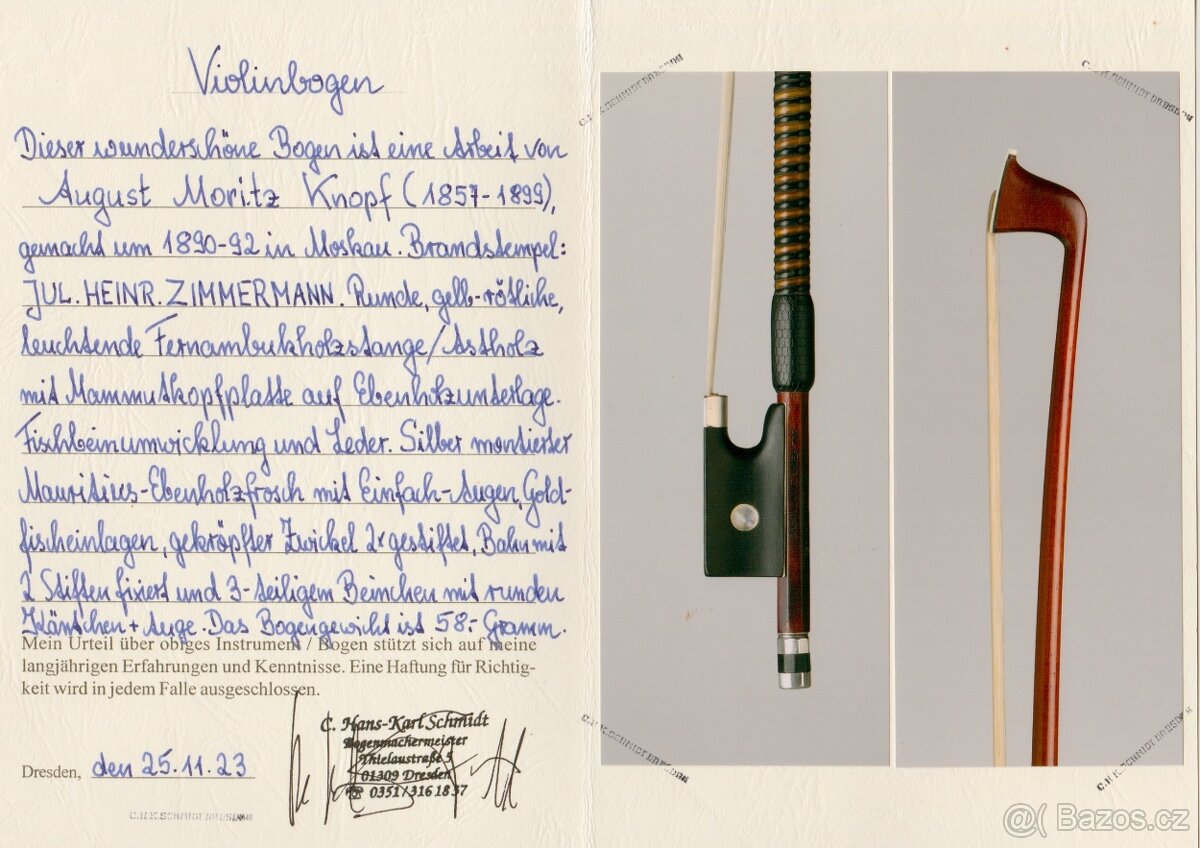 Violinbogen
Dieser wunderschöne Bogen ist eine Arbeit von
August Moritz Knopf (1857-1899),
gemacht um 1890-92 in Moskau. Brandstempel:
JUL. HEINR. ZIMMERMANN. Runde, gelb-rötliche,
leuchtende Fernambukholzstange/Astholz
mit Mammutkopfplatte auf Ebenholzunterlage.
Fischbeinumwicklung und Leder. Silber montierter
Mauritius-Ebenholzfrosch mit Einfach-Augen, Gold-
fischeinlagen, gekröpfter Zwickel 2x gestiftet, Bahn mit
2 Stiften fixiert und 3-teiligem Beinchen mit runden
Käntchen + Auge. Das Bogengewicht ist 58.- Gramm.
Mein Urteil über obiges Instrument / Bogen stützt sich auf meine
langjährigen Erfahrungen und Kenntnisse. Eine Haftung für Richtig-
keit wird in jedem Falle ausgeschlossen.
C. Hans-Karl Schmidt
Bogenmachermeister
Thielaustraße 5
01309 Dresden
☎ 0351/316 18 37
Dresden, den 25.11.23
C.H.K.SCHMIDT DRESDEN
C.H.K.SCHMIDT DRESDEN
C.H.K.SCHMIDT DRESDEN
C.H.K.SCHMIDT DRESDEN
C.H.K.SCHMIDT DRESDEN
@( Bazos.cz